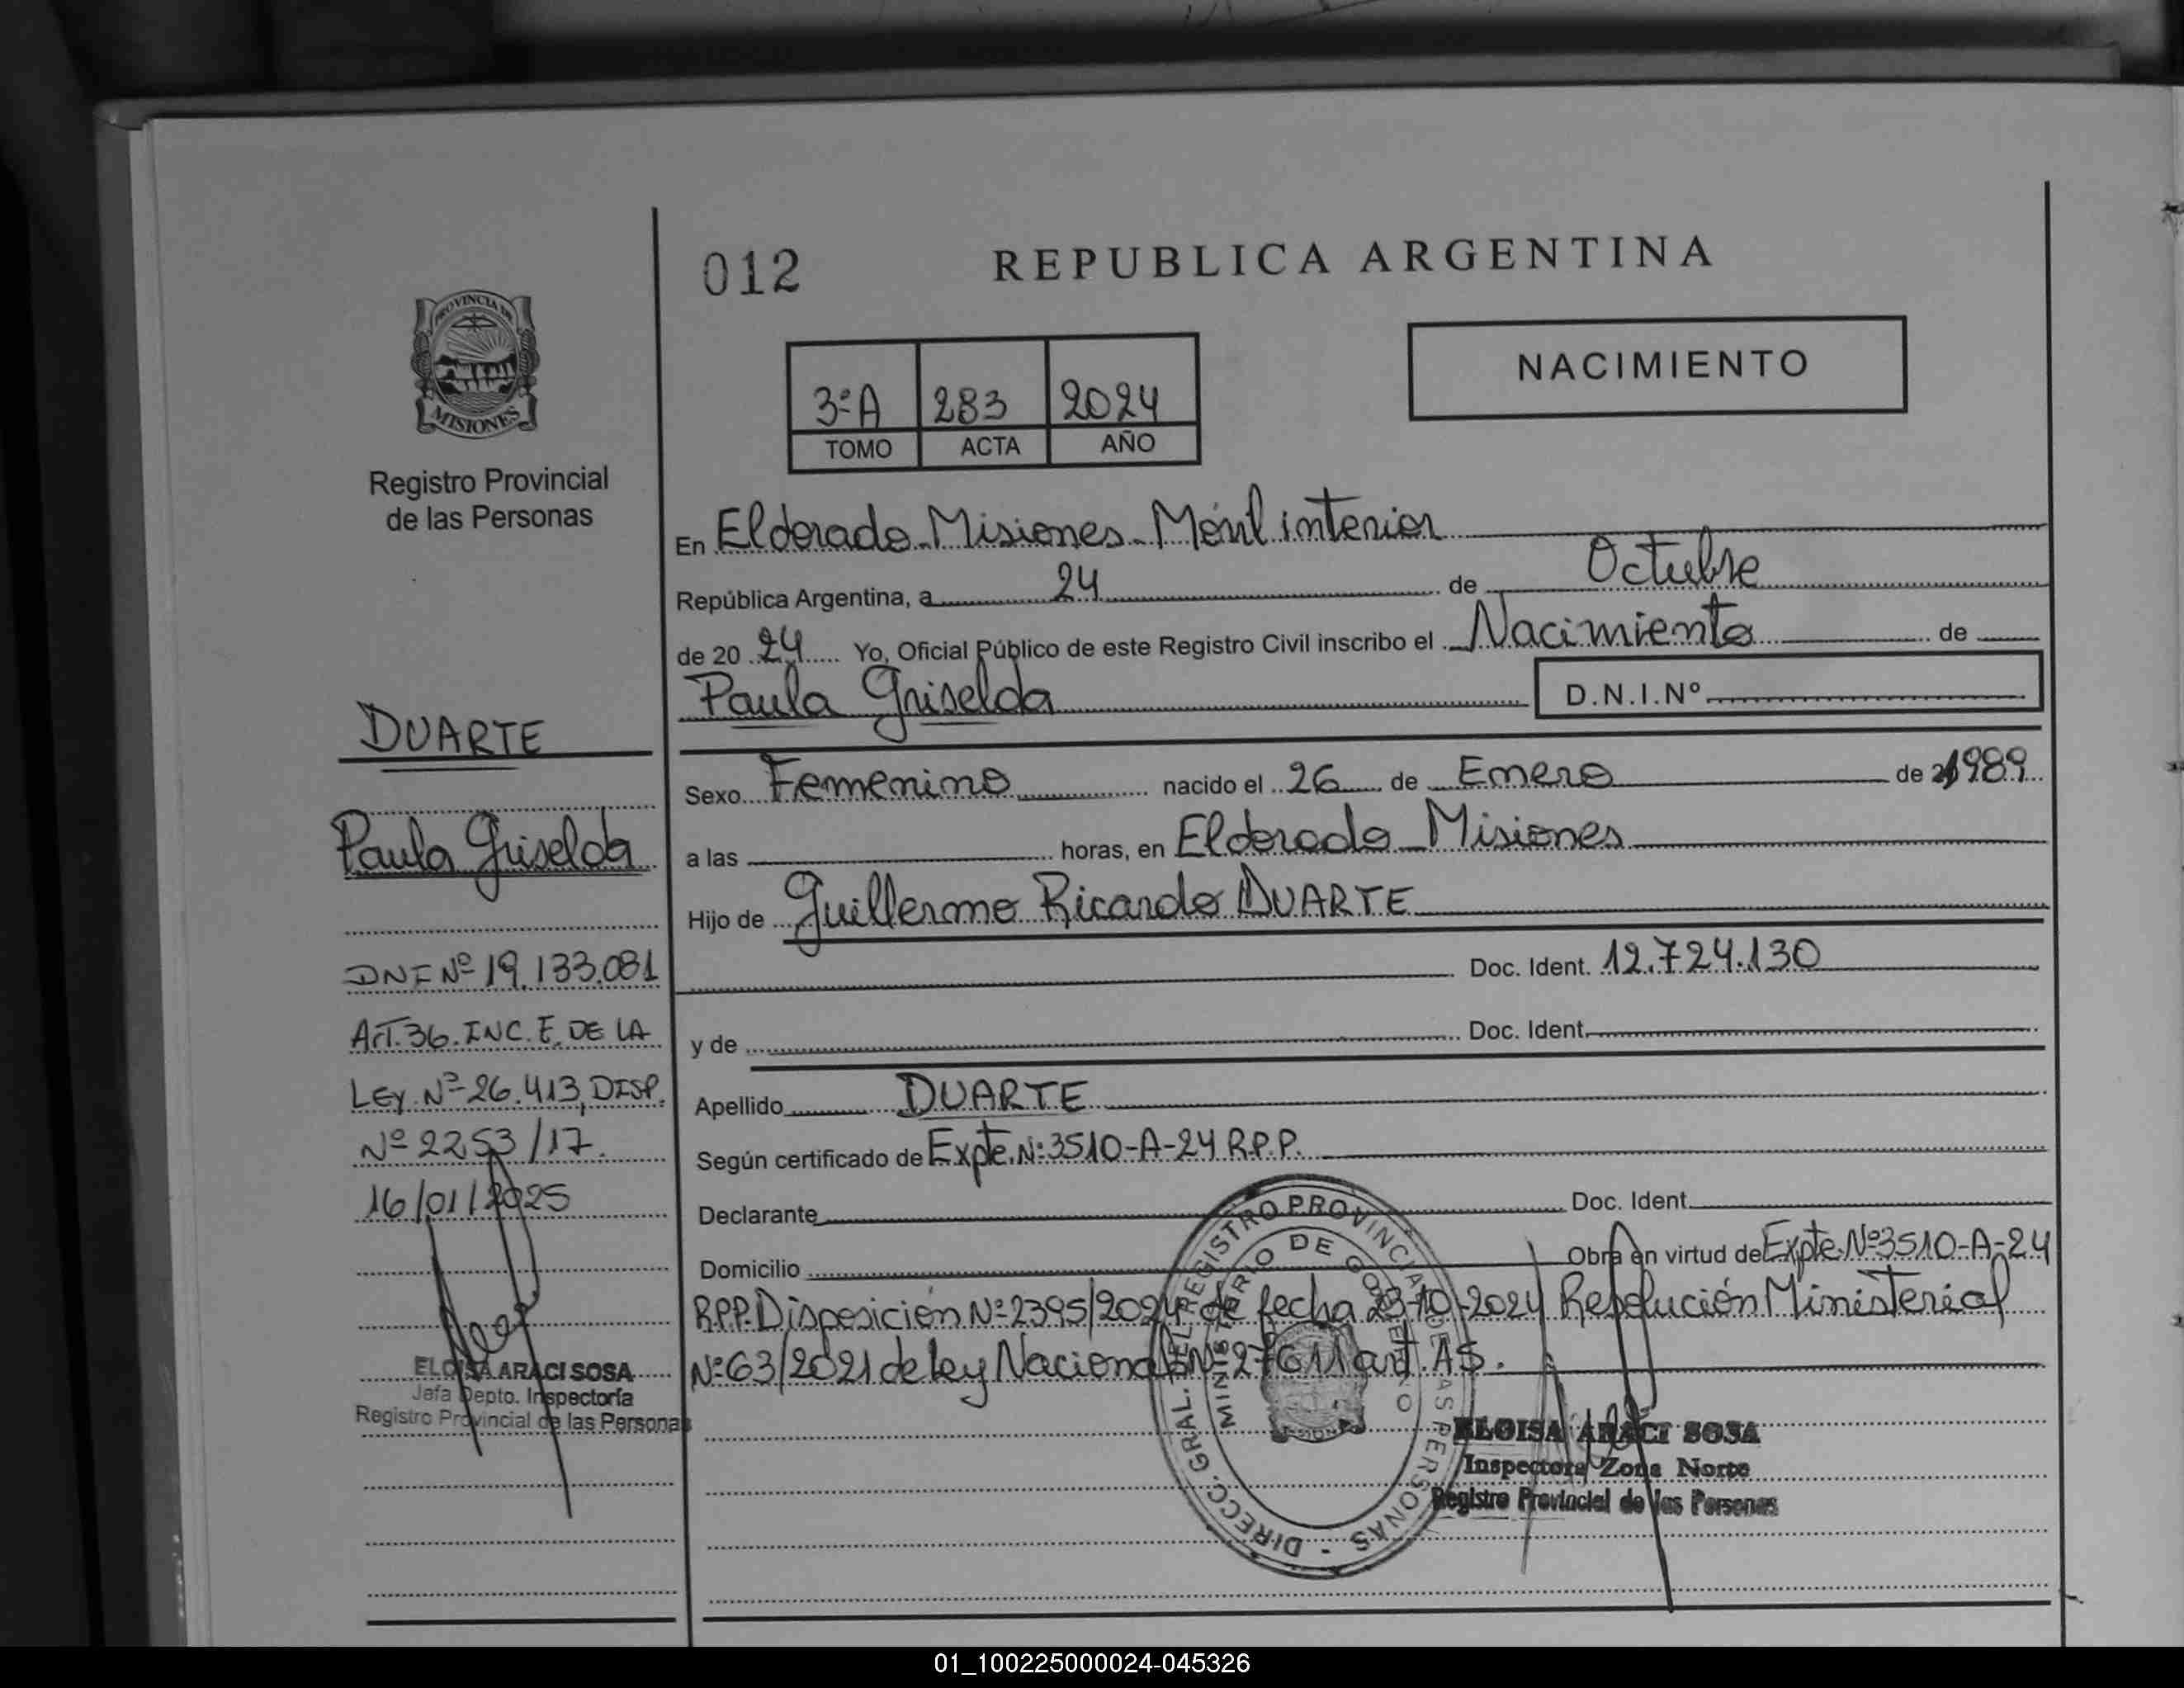 012
REPUBLICA ARGENTINA
PROVINCIA DE
MISIONES
Registro Provincial
de las Personas
3ºA 283 2024
TOMO ACTA AÑO
NACIMIENTO
En Eldorado Misiones Móvil interior
República Argentina, a 24 de Octubre
de 20 24 Yo, Oficial Público de este Registro Civil inscribo el Nacimiento de
Paula Griselda D.N.I.Nº
Sexo Femenino nacido el 26 de Enero de 1989
a las horas, en Eldorado Misiones
Hijo de Guillermo Ricardo DUARTE
Doc. Ident. 12.724.130
y de Doc. Ident.
Apellido DUARTE
Según certificado de Expte. Nº 3510-A-24 R.P.P.
Declarante Doc. Ident.
Domicilio Obra en virtud de Expte. Nº 3510-A-24
R.P.P. Disposición Nº 2395/2024 de fecha 23-10-2024 Resolución Ministerial
Nº 63/2021 de Ley Nacional Nº 27611 art.
DUARTE
Paula Griselda
DNI Nº 19.133.081
Art. 36. INC. E. DE LA
LEY Nº 26.413, DISP.
Nº 2253/17.
16/01/2025
ELOISA ARACI SOSA
Jefa Depto. Inspectoría
Registro Provincial de las Personas
DIRECC. GRAL. DEL REGISTRO PROVINCIAL DE LAS PERSONAS -
MINISTERIO DE GOBIERNO
ELOISA ARACI SOSA
Inspectora Zona Norte
Registro Provincial de las Personas
01_100225000024-045326